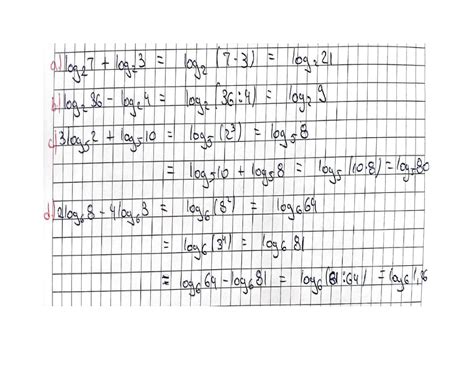 a) log₂7 + log₂3 = log₂(7·3) = log₂21
b) log₂36 - log₂4 = log₂(36:4) = log₂9
c) 3log₅2 + log₅10 = log₅(2³) = log₅8
= log₅10 + log₅8 = log₅(10·8) = log₅80
d) 2log₆8 - 4log₆3 = log₆(8²) = log₆64
= log₆(3⁴) = log₆81
= log₆64 - log₆81 = log₆(81:64) = log₆